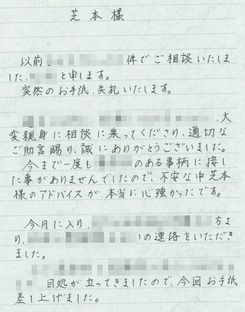 芝本様
以前 件でご相談いたしま
した、 と申します。
突然のお手紙、失礼いたします。
、大
変親身に相談に乗ってくださり、適切な
ご助言賜り、誠にありがとうございました。
今まで一度も のある事柄に接し
た事がありませんでしたので、不安な中芝本
様のアドバイスが、本当に心強かったです。
今月に入り、 方よ
り、 の連絡をいただき
ました。
目処が立ってきましたので、今回お手紙
差し上げました。